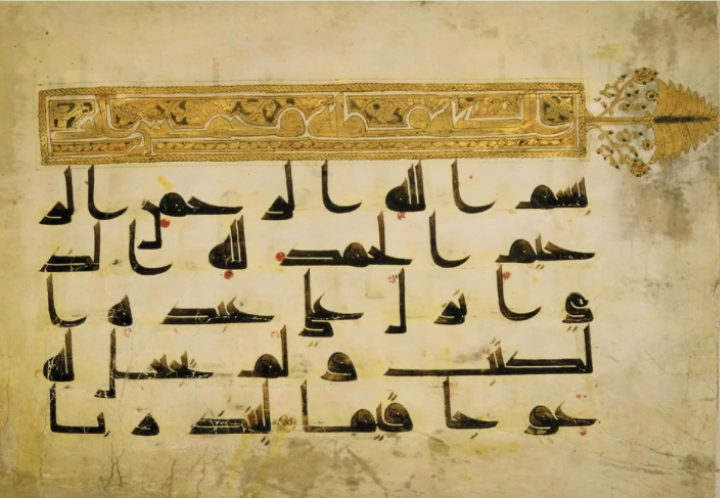 بسم الله الرحمن الر
حيم الحمد لله الذ
ي انزل علي عبده ا
لكتب ولم يجعل له
عوجا قيما لينذر با